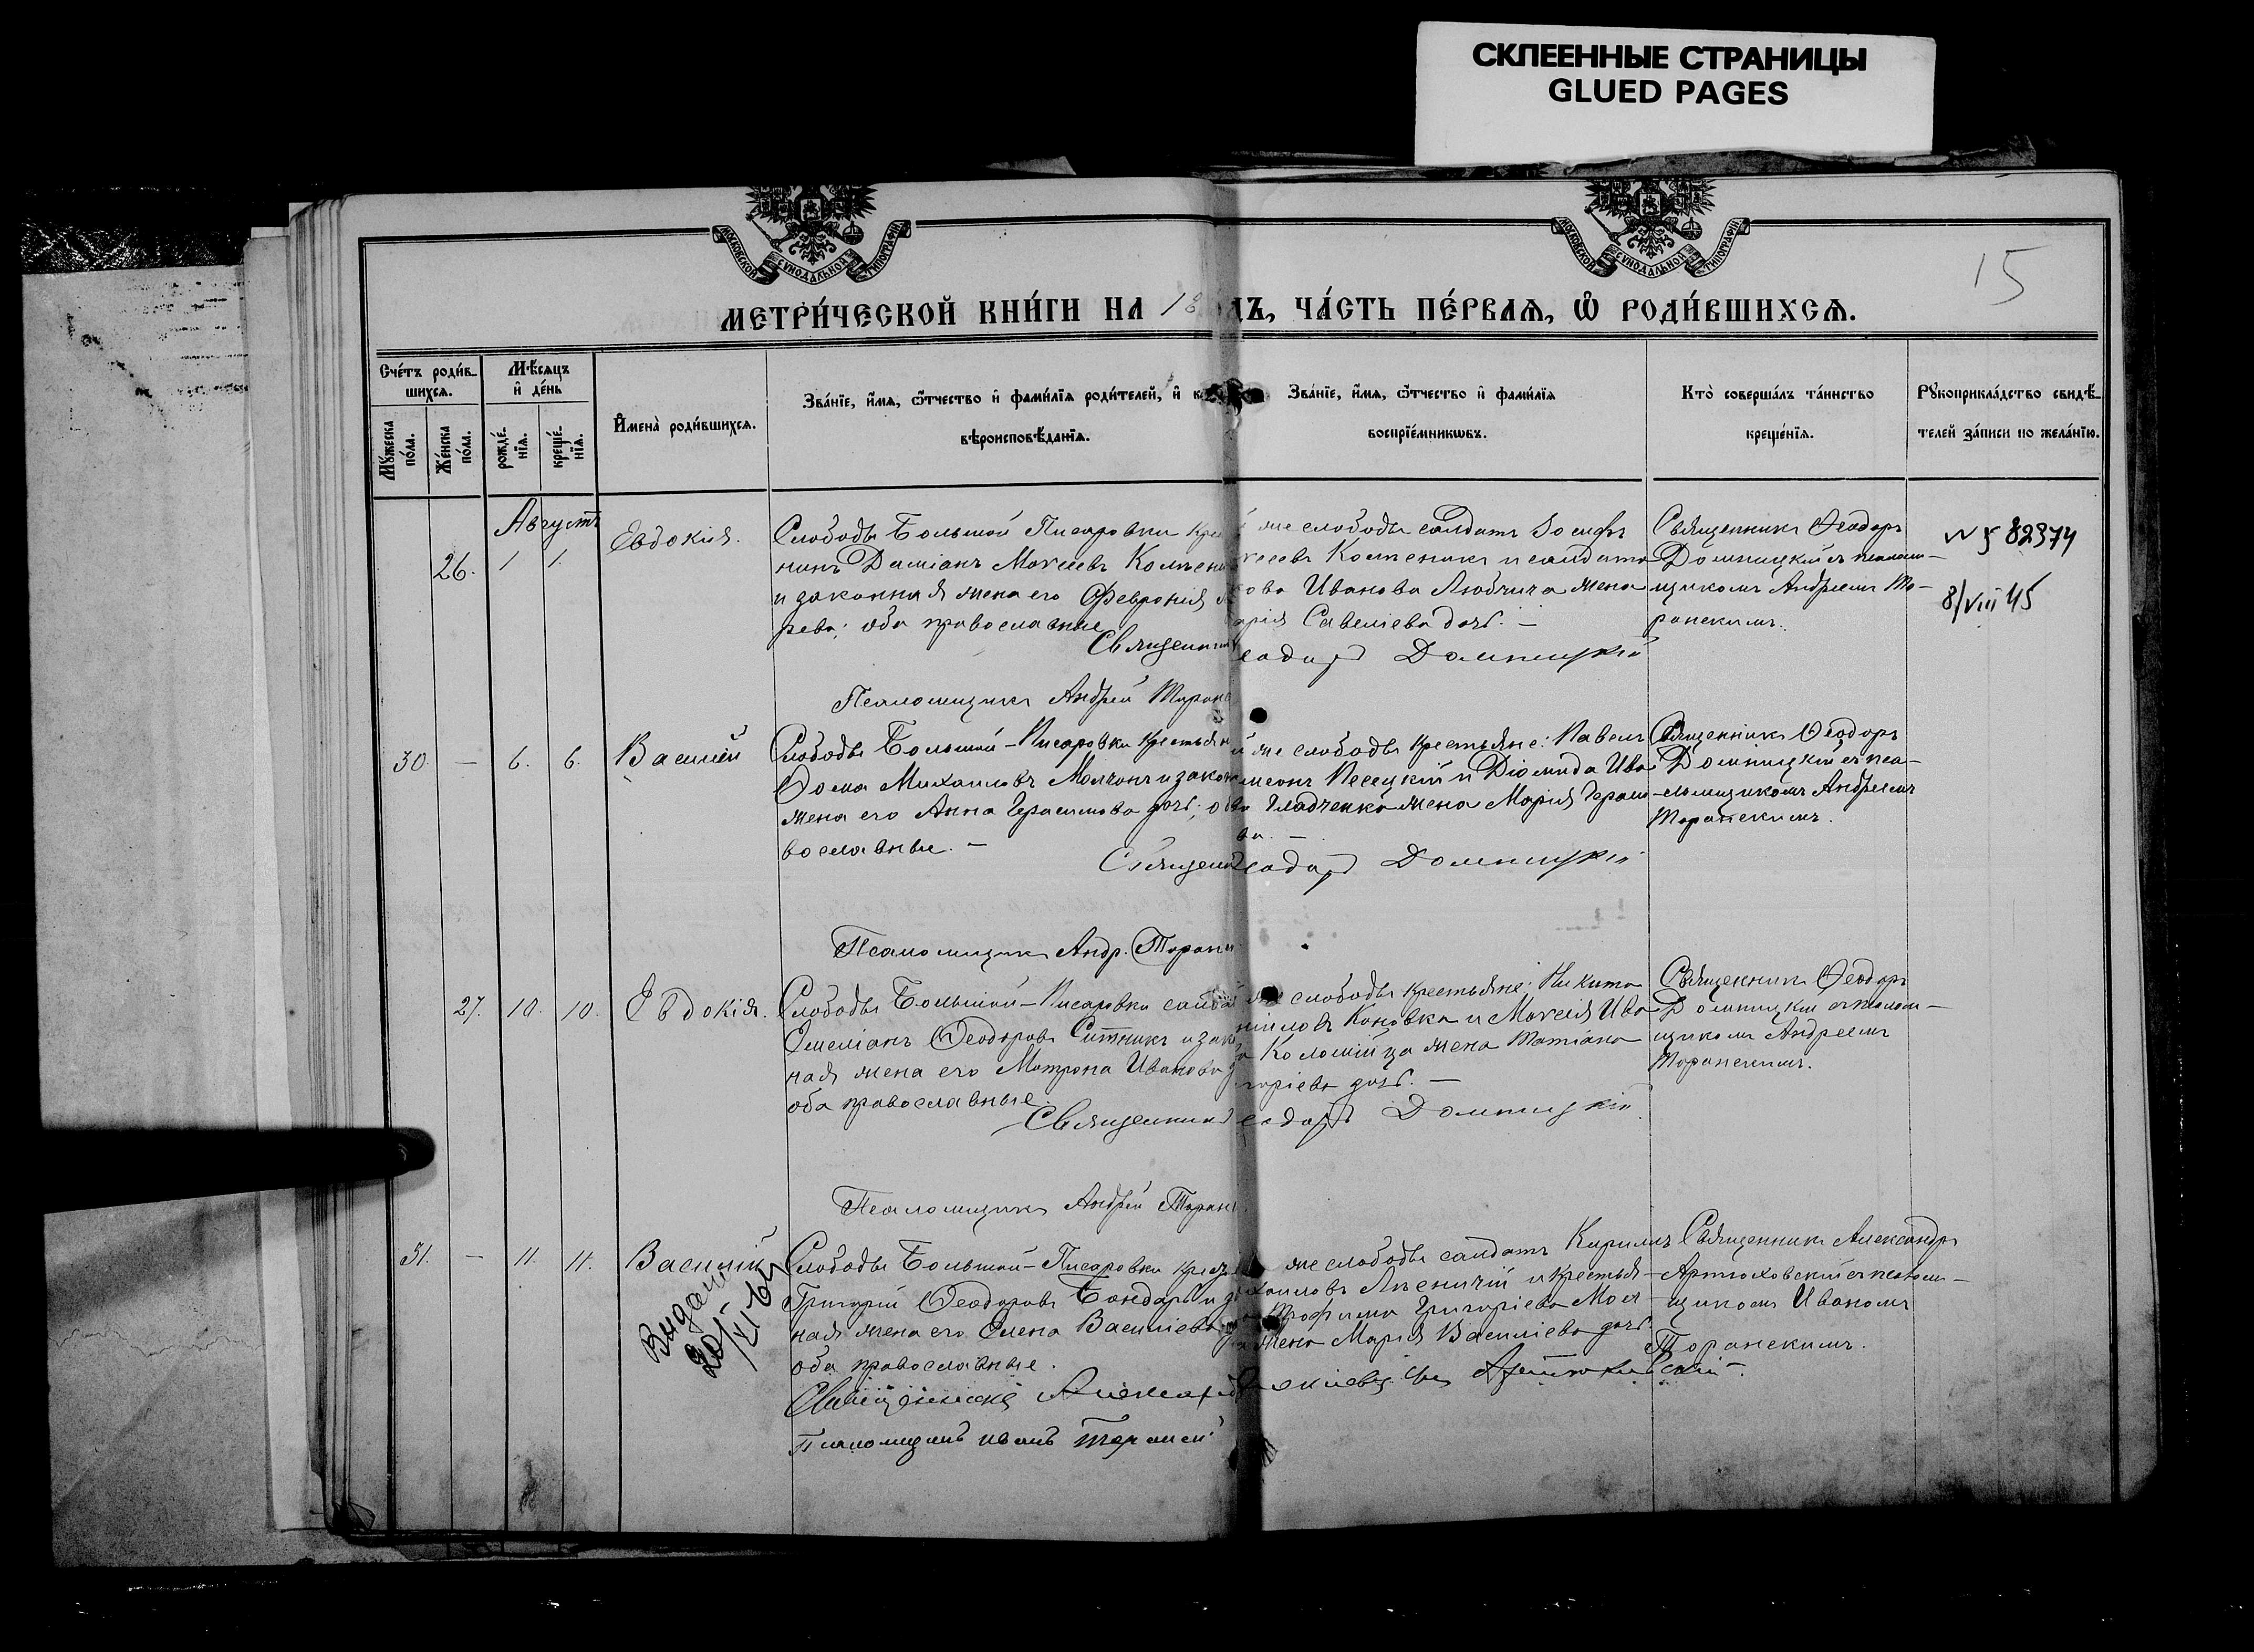 СКЛЕЕННЫЕ СТРАНИЦЫ
GLUED PAGES
МОСКОВСКОЙ СѴНОДАЛЬНОЙ ТИПОГРАФІИ
МОСКОВСКОЙ СѴНОДАЛЬНОЙ ТИПОГРАФІИ
15
МЕТРИ́ЧЕСКОЙ КНИ́ГИ НА 18 ДЪ, ЧА́СТЬ ПЕ́РВАѦ, Ѡ РОДИ́ВШИХСѦ.
Сче́тъ роди́вшихся.
Му́жеска по́ла.
Же́нска по́ла.
Мѣ́сяцъ и де́нь
рожде́нїя.
креще́нїя.
И҆мена̀ роди́вшихся.
Зва́нїе, и҆́мя, ѻ҆́тчество и҆ фами́лїя роди́телей, и҆ к
вѣроисповѣ́данїя.
Зва́нїе, и҆́мя, ѻ҆́тчество и҆ фами́лїя
воспрїе́мникѡвъ.
Кто̀ соверша́лъ та́инство
креще́нїя.
Рꙋкоприкла́дство свидѣ́-
телей за́писи по жела́нїю.
Августъ
26. 1 1.
Евдокия.
Слободы Большой Писаровки кре
нинъ Даміанъ Моисеевъ Колпени
и законная жена его Феврония
рева; оба православные
Священник
Псаломщикъ Андрей Торанс
же слободы солдатъ Іосифъ
сеевъ Колпеникъ и солдата
кова Иванова Любчича жена
арія Савелиева дочь. –
еодоръ Домницкій
Священникъ Ѳеодоръ
Домницкій съ псалом-
щикомъ Андреемъ То-
ранскимъ.
№ 82374
8/VIII 45
30. – 6. 6.
Василий
Слободы Большой-Писаровки крестьян
Ѳома Михаиловъ Молчанъ и закон
жена его Анна Герасимова дочь; о
вославные. –
Священ
Псаломщикъ Андр. Торанс
й же слободы крестьяне: Павелъ
меонъ Песецкій и Діомида Ива
ва Гладченка жена Марія Герасимо
ва. –
еодоръ Домницкій
Священникъ Ѳеодоръ
Домницкій съ пса-
ломщикомъ Андреемъ
Торанскимъ.
27. 10. 10.
Евдокія.
Слободы Большой-Писаровки солда
Емеліанъ Ѳеодоровъ Ситникъ и зак
ная жена его Матрона Иванова
оба православные.
Священник
Псаломщикъ Андрей Торанс
же слободы крестьяне: Никита
ниловъ Коновка и Моисея Ива
ва Коломійца жена Татіана
горіева дочь. –
еодоръ Домницкій
Священникъ Ѳеодоръ
Домницкій съ псалом-
щикомъ Андреемъ
Торанскимъ.
31. – 11. 11.
Василій
Выдан
20/XI 64
Слободы Большой-Писаровки крест
Григорій Ѳеодоровъ Бондарь и за
ная жена его Елена Василіева
оба православные.
Священникъ Александръ
Псаломщикъ Иванъ Торанскій
же слободы солдатъ Кирилъ
хаиловъ и крестья
Трофима Григоріева Мол
жена Марія Василіева дочь.
Артюховскій.
Священникъ Александръ
Артюховскій съ псалом-
щикомъ Иваномъ
Торанскимъ.